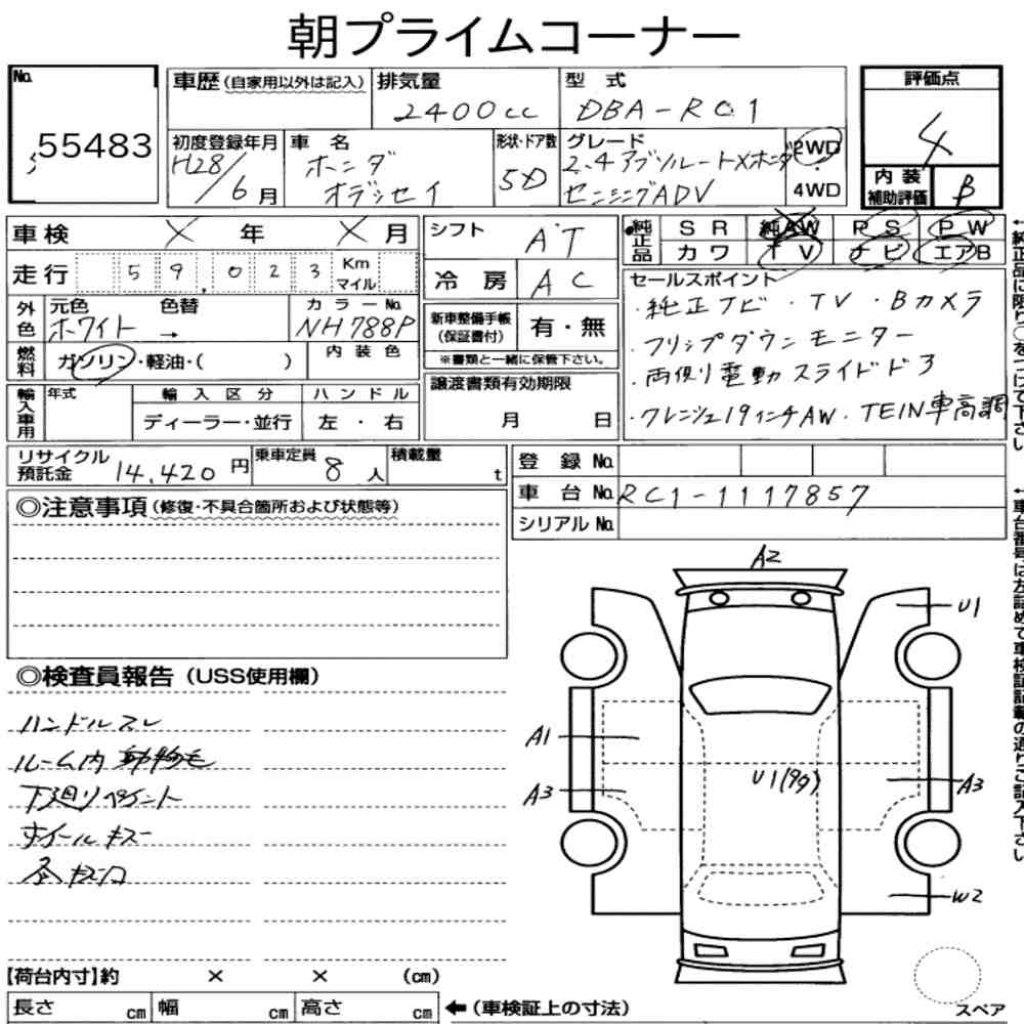 朝プライムコーナー
No.
55483
車歴(自家用以外は記入)
排気量
2400cc
型 式
DBA-RC1
評価点
4
初度登録年月
H28/6月
車 名
ホンダ
オデッセイ
形状・ドア数
5D
グレード
2.4アブソルートXホンダ
センシングADV
2WD
4WD
内装
補助評価
B
車検 × 年 × 月
シフト
AT
純正品
SR 純AW PS PW
カワ TV ナビ エアB
走行 59,023 Km
マイル
冷房 AC
外色
元色
ホワイト →
色替
カラーNo.
NH788P
新車整備手帳
(保証書付)
有・無
※書類と一緒に保管下さい。
セールスポイント
・純正ナビ ・TV ・Bカメラ
・フリップダウンモニター
・両側電動スライドドア
・クレンツェ19インチAW・TEIN車高調
燃料
ガソリン・軽油・( )
内装色
輸入車用
年式
輸入区分
ディーラー・並行
ハンドル
左・右
譲渡書類有効期限
月 日
リサイクル
預託金
14,420円
乗車定員 8人
積載量
t
登録No.
車台No. RC1-1117857
シリアルNo.
←純正品に限り○をつけて下さい
←車台番号は左詰めで車検証記載の通りご記入下さい
◎注意事項(修復・不具合箇所および状態等)
◎検査員報告(USS使用欄)
ハンドルスレ
ルーム内 動物毛
下廻りペイント
ホイールキズ
A2
U1
A1
U1(99)
A3
A3
W2
スペア
【荷台内寸】約 × × (cm)
長さ cm 幅 cm 高さ cm
←(車検証上の寸法)